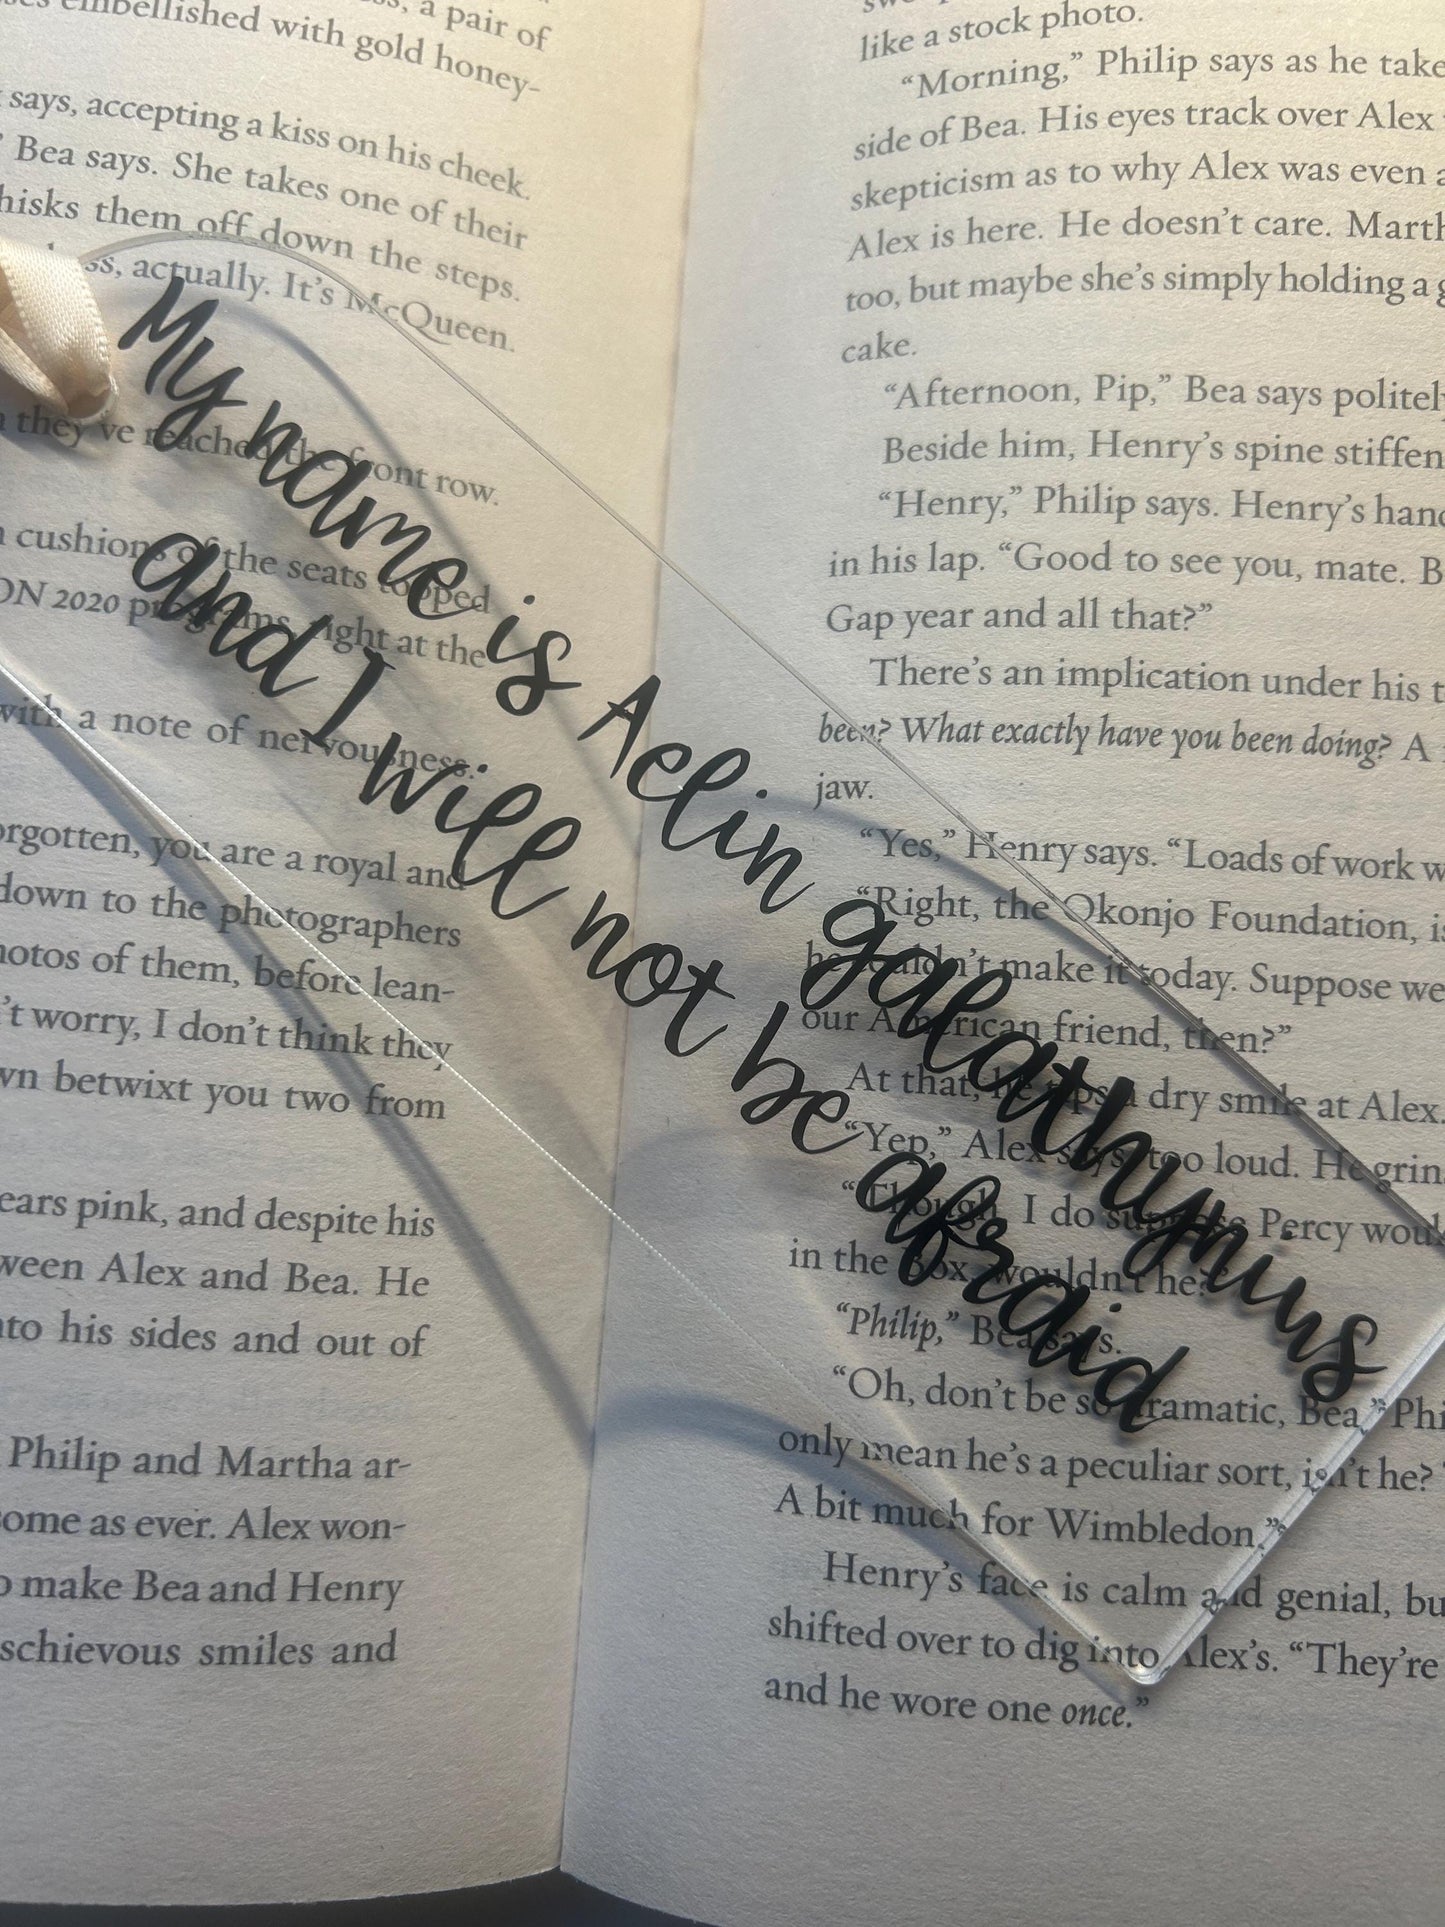 a pair of
embellished with gold honey-
says, accepting a kiss on his cheek.
Bea says. She takes one of their
them off down the steps.
actually. It's McQueen.
they've reached the front row.
cushions of the seats topped
2020 programs right at the
with a note of nervousness.
you are a royal and
down to the photographers
of them, before lean-
worry, I don't think they
betwixt you two from
ears pink, and despite his
Alex and Bea. He
his sides and out of
Philip and Martha ar-
as ever. Alex won-
make Bea and Henry
smiles and
My name is Aelin galathynius
and I will not be afraid
like a stock photo.
“Morning,” Philip says as he take
side of Bea. His eyes track over Alex
skepticism as to why Alex was even
Alex is here. He doesn't care. Marth
too, but maybe she's simply holding a g
cake.
“Afternoon, Pip,” Bea says politel
Beside him, Henry's spine stiffen
“Henry,” Philip says. Henry's hand
in his lap. “Good to see you, mate. B
Gap year and all that?”
There's an implication under his t
been? What exactly have you been doing? A
jaw.
“Yes,” Henry says. “Loads of work w
“Right, the Okonjo Foundation, is
he couldn't make it today. Suppose we
our American friend, then?”
At that, he tips a dry smile at Alex.
“Yep,” Alex says, too loud. He grin
“Though, I do suppose Percy woul
in the Box, wouldn't he?
“Philip,” Bea says.
“Oh, don't be so dramatic, Bea,” Phi
only mean he's a peculiar sort, isn't he?
A bit much for Wimbledon.”
Henry's face is calm and genial, bu
shifted over to dig into Alex's. “They're
and he wore one once.”